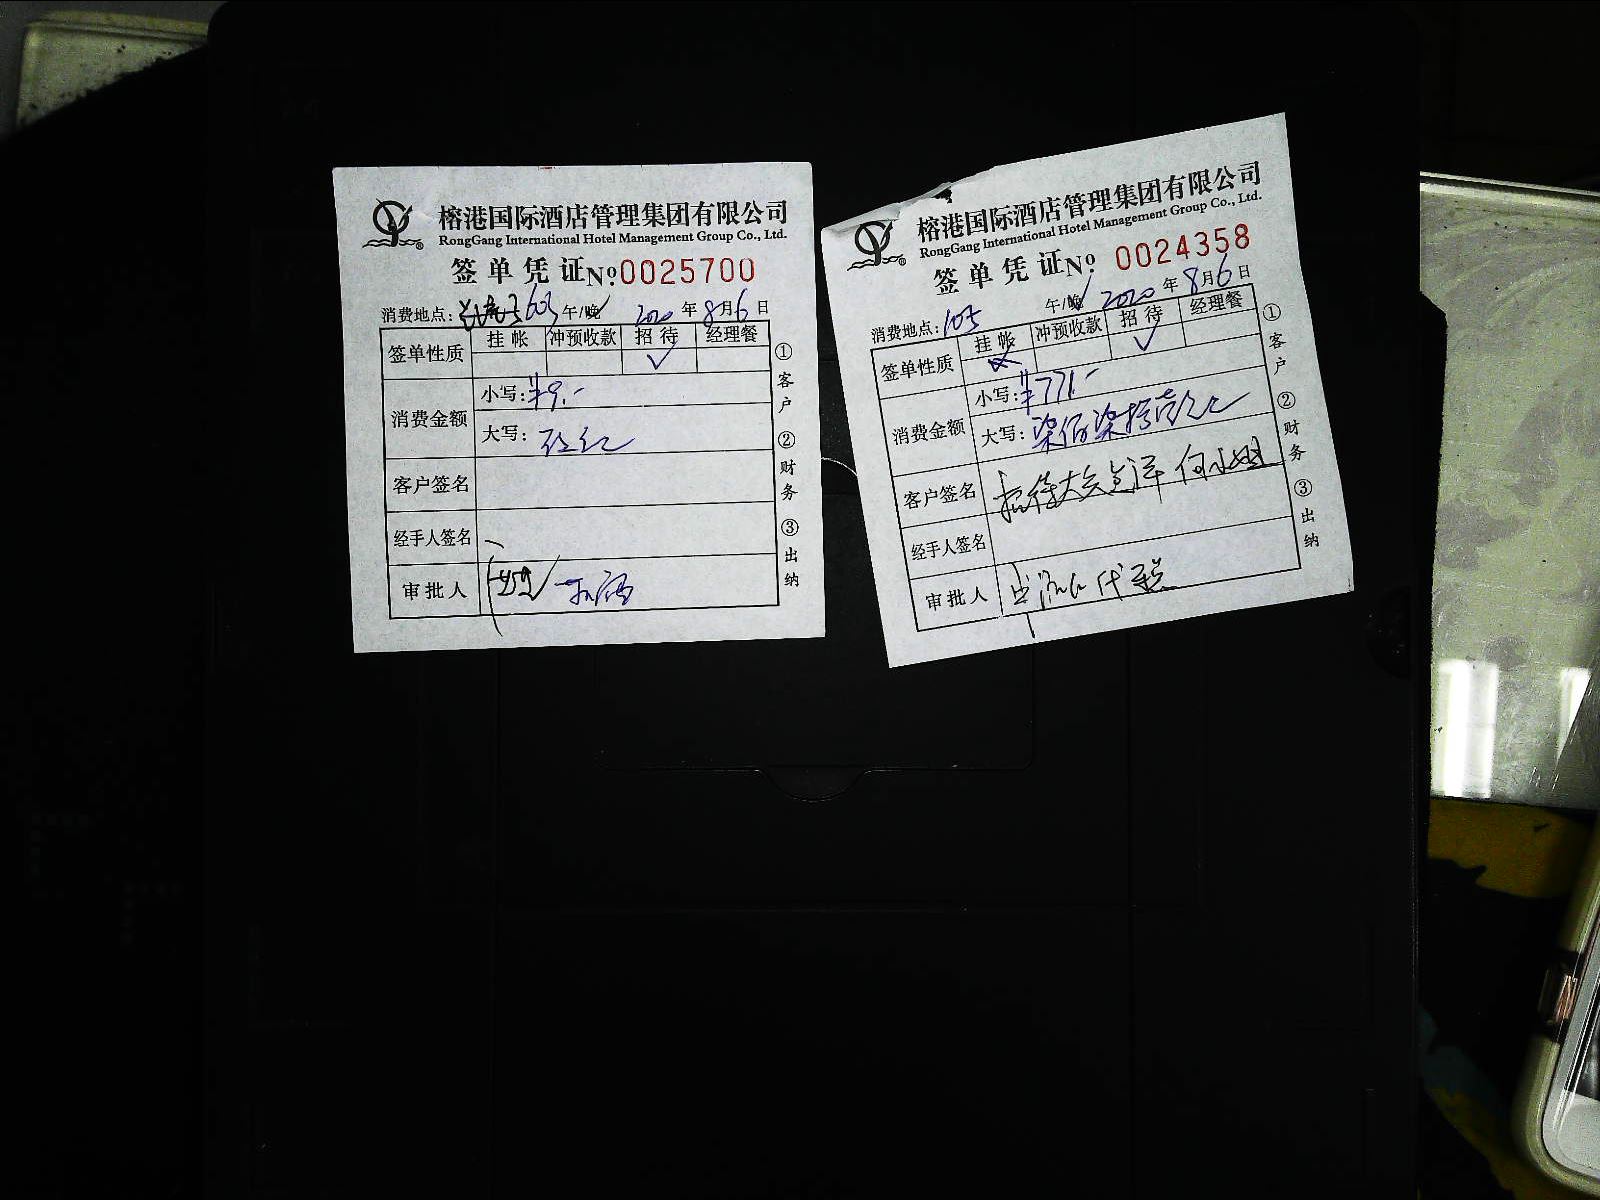 榕港国际酒店管理集团有限公司
RongGang International Hotel Management Group Co., Ltd.
签单凭证 Nº 0025700
消费地点: 603 午/晚 2020年8月6日
签单性质 挂帐 冲预收款 招待 经理餐
✓
消费金额 小写: ¥9.-
大写:
客户签名
经手人签名
审批人
①客户 ②财务 ③出纳
榕港国际酒店管理集团有限公司
RongGang International Hotel Management Group Co., Ltd.
签单凭证 Nº 0024358
消费地点: 105 午/晚 2020年8月6日
签单性质 挂帐 冲预收款 招待 经理餐
✓
消费金额 小写: ¥771.-
大写: 柒佰柒拾壹元
客户签名 招待
经手人签名
审批人
①客户 ②财务 ③出纳